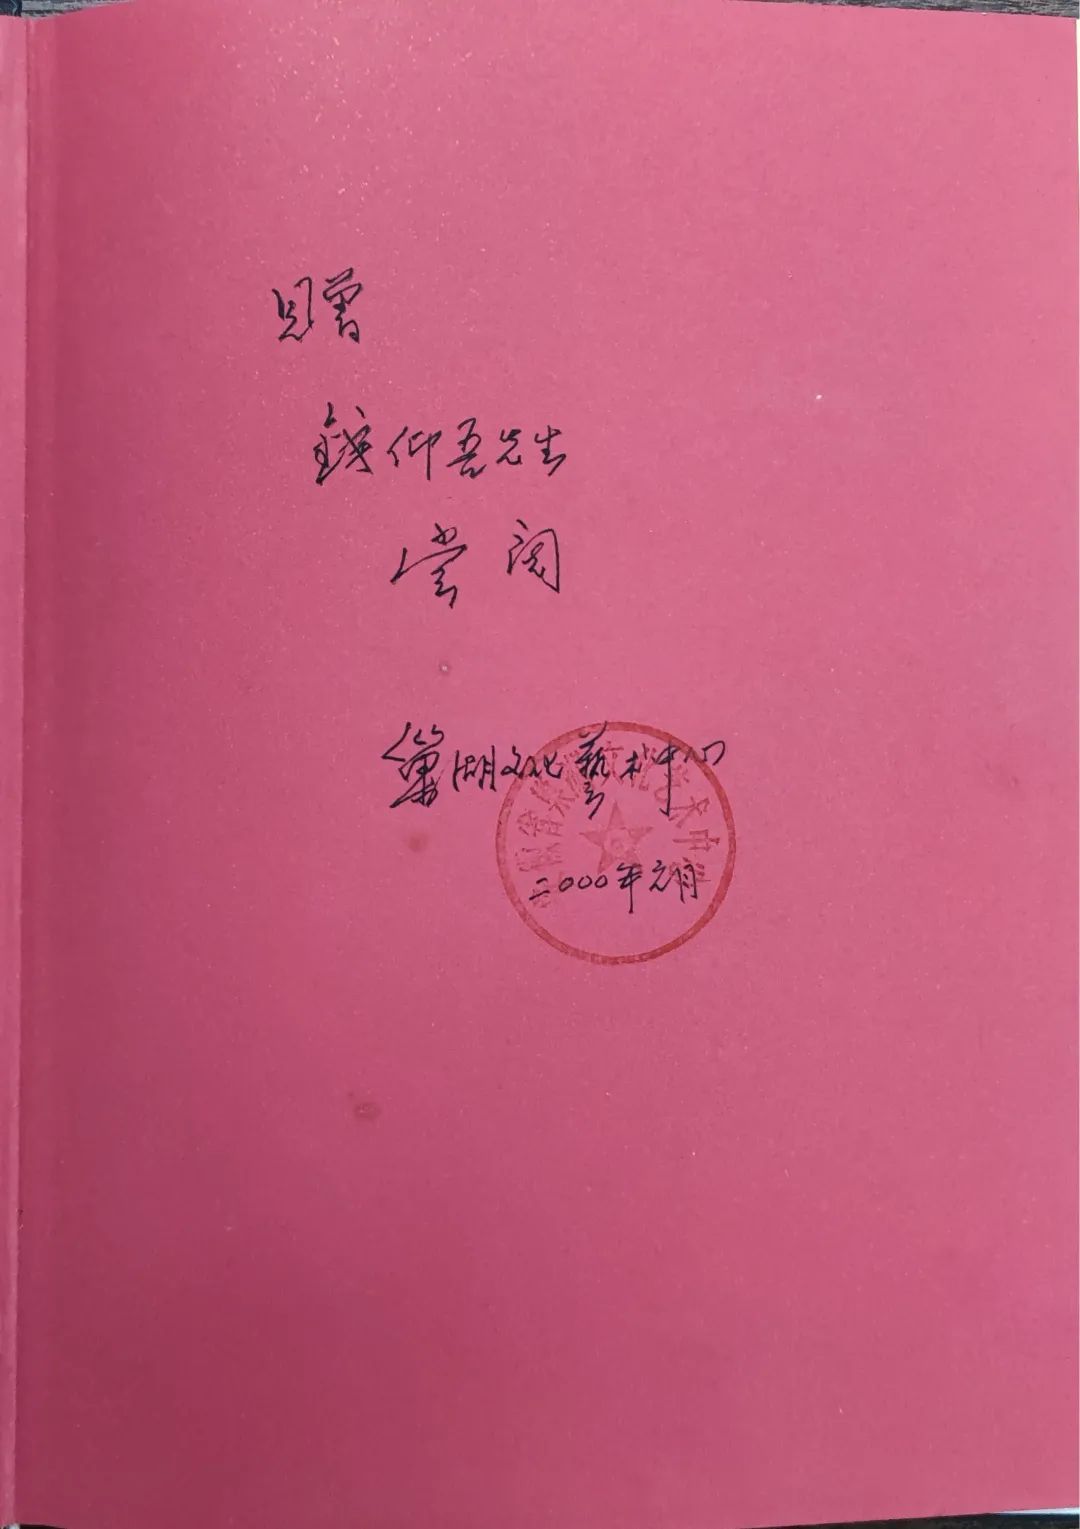 赠
钱仰吾先生
赏阅
巢湖文化藝术中心
二000年元月